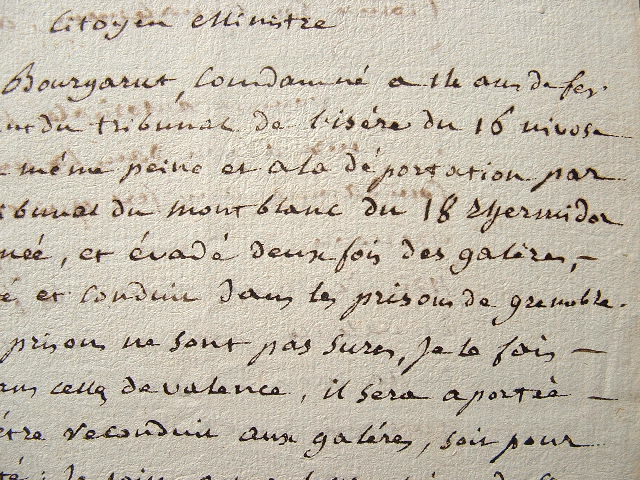 Citoyen Ministre
Bourgarut, Condamné a 14 ans de fer
du tribunal de l'isére du 16 nivose
même peine et a la déportation par
du mont blanc du 18 thermidor
, et évadé deux fois des galères, –
et conduit dans les prisons de grenoble.
prisons ne sont pas sures, je le fais –
celles de valence, il sera a portée –
être reconduit aux galéres, soit pour